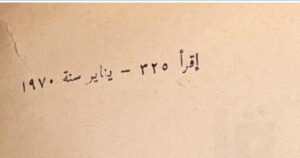 إقرأ ٣٢٥ – يناير سنة ١٩٧٠